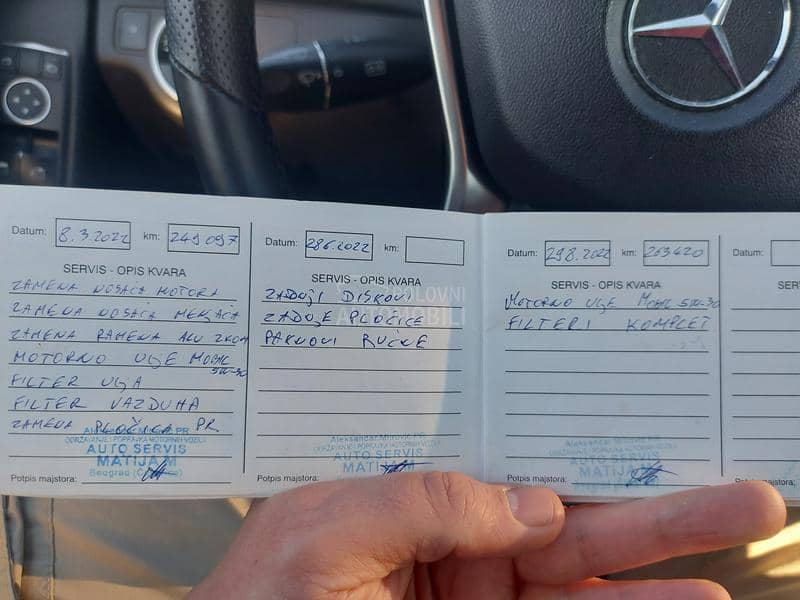 Datum: 8.3.2022 km: 249 097
SERVIS - OPIS KVARA
ZAMENA NOSAČA MOTORA
ZAMENA NOSAČA MENJAČA
ZAMENA RAMENA ALU 2KOM
MOTORNO ULJE MOBIL
5W-30
FILTER ULJA
FILTER VAZDUHA
ZAMENA PLOČICA PR
Aleksandar Mitrović PR
ODRŽAVANJE I POPRAVKA MOTORNIH VOZILA
AUTO SERVIS
MATIJA M
Beograd
Potpis majstora:
Datum: 28.6.2022 km:
SERVIS - OPIS KVARA
ZADNJI DISKOVI
ZADNJE PLOČICE
PAKNOVI RUČNE
POLOVNI
AUTOMOBILI
Aleksandar Mitrović PR
ODRŽAVANJE I POPRAVKA MOTORNIH VOZILA
AUTO SERVIS
MATIJA M
Potpis majstora:
Datum: 29.8.2022 km: 263420
SERVIS - OPIS KVARA
MOTORNO ULJE MOBIL 5W-30
FILTERI KOMPLET
Aleksandar Mitrović PR
ODRŽAVANJE I POPRAVKA MOTORNIH VOZILA
AUTO SERVIS
MATIJA M
Potpis majstora:
Datum: